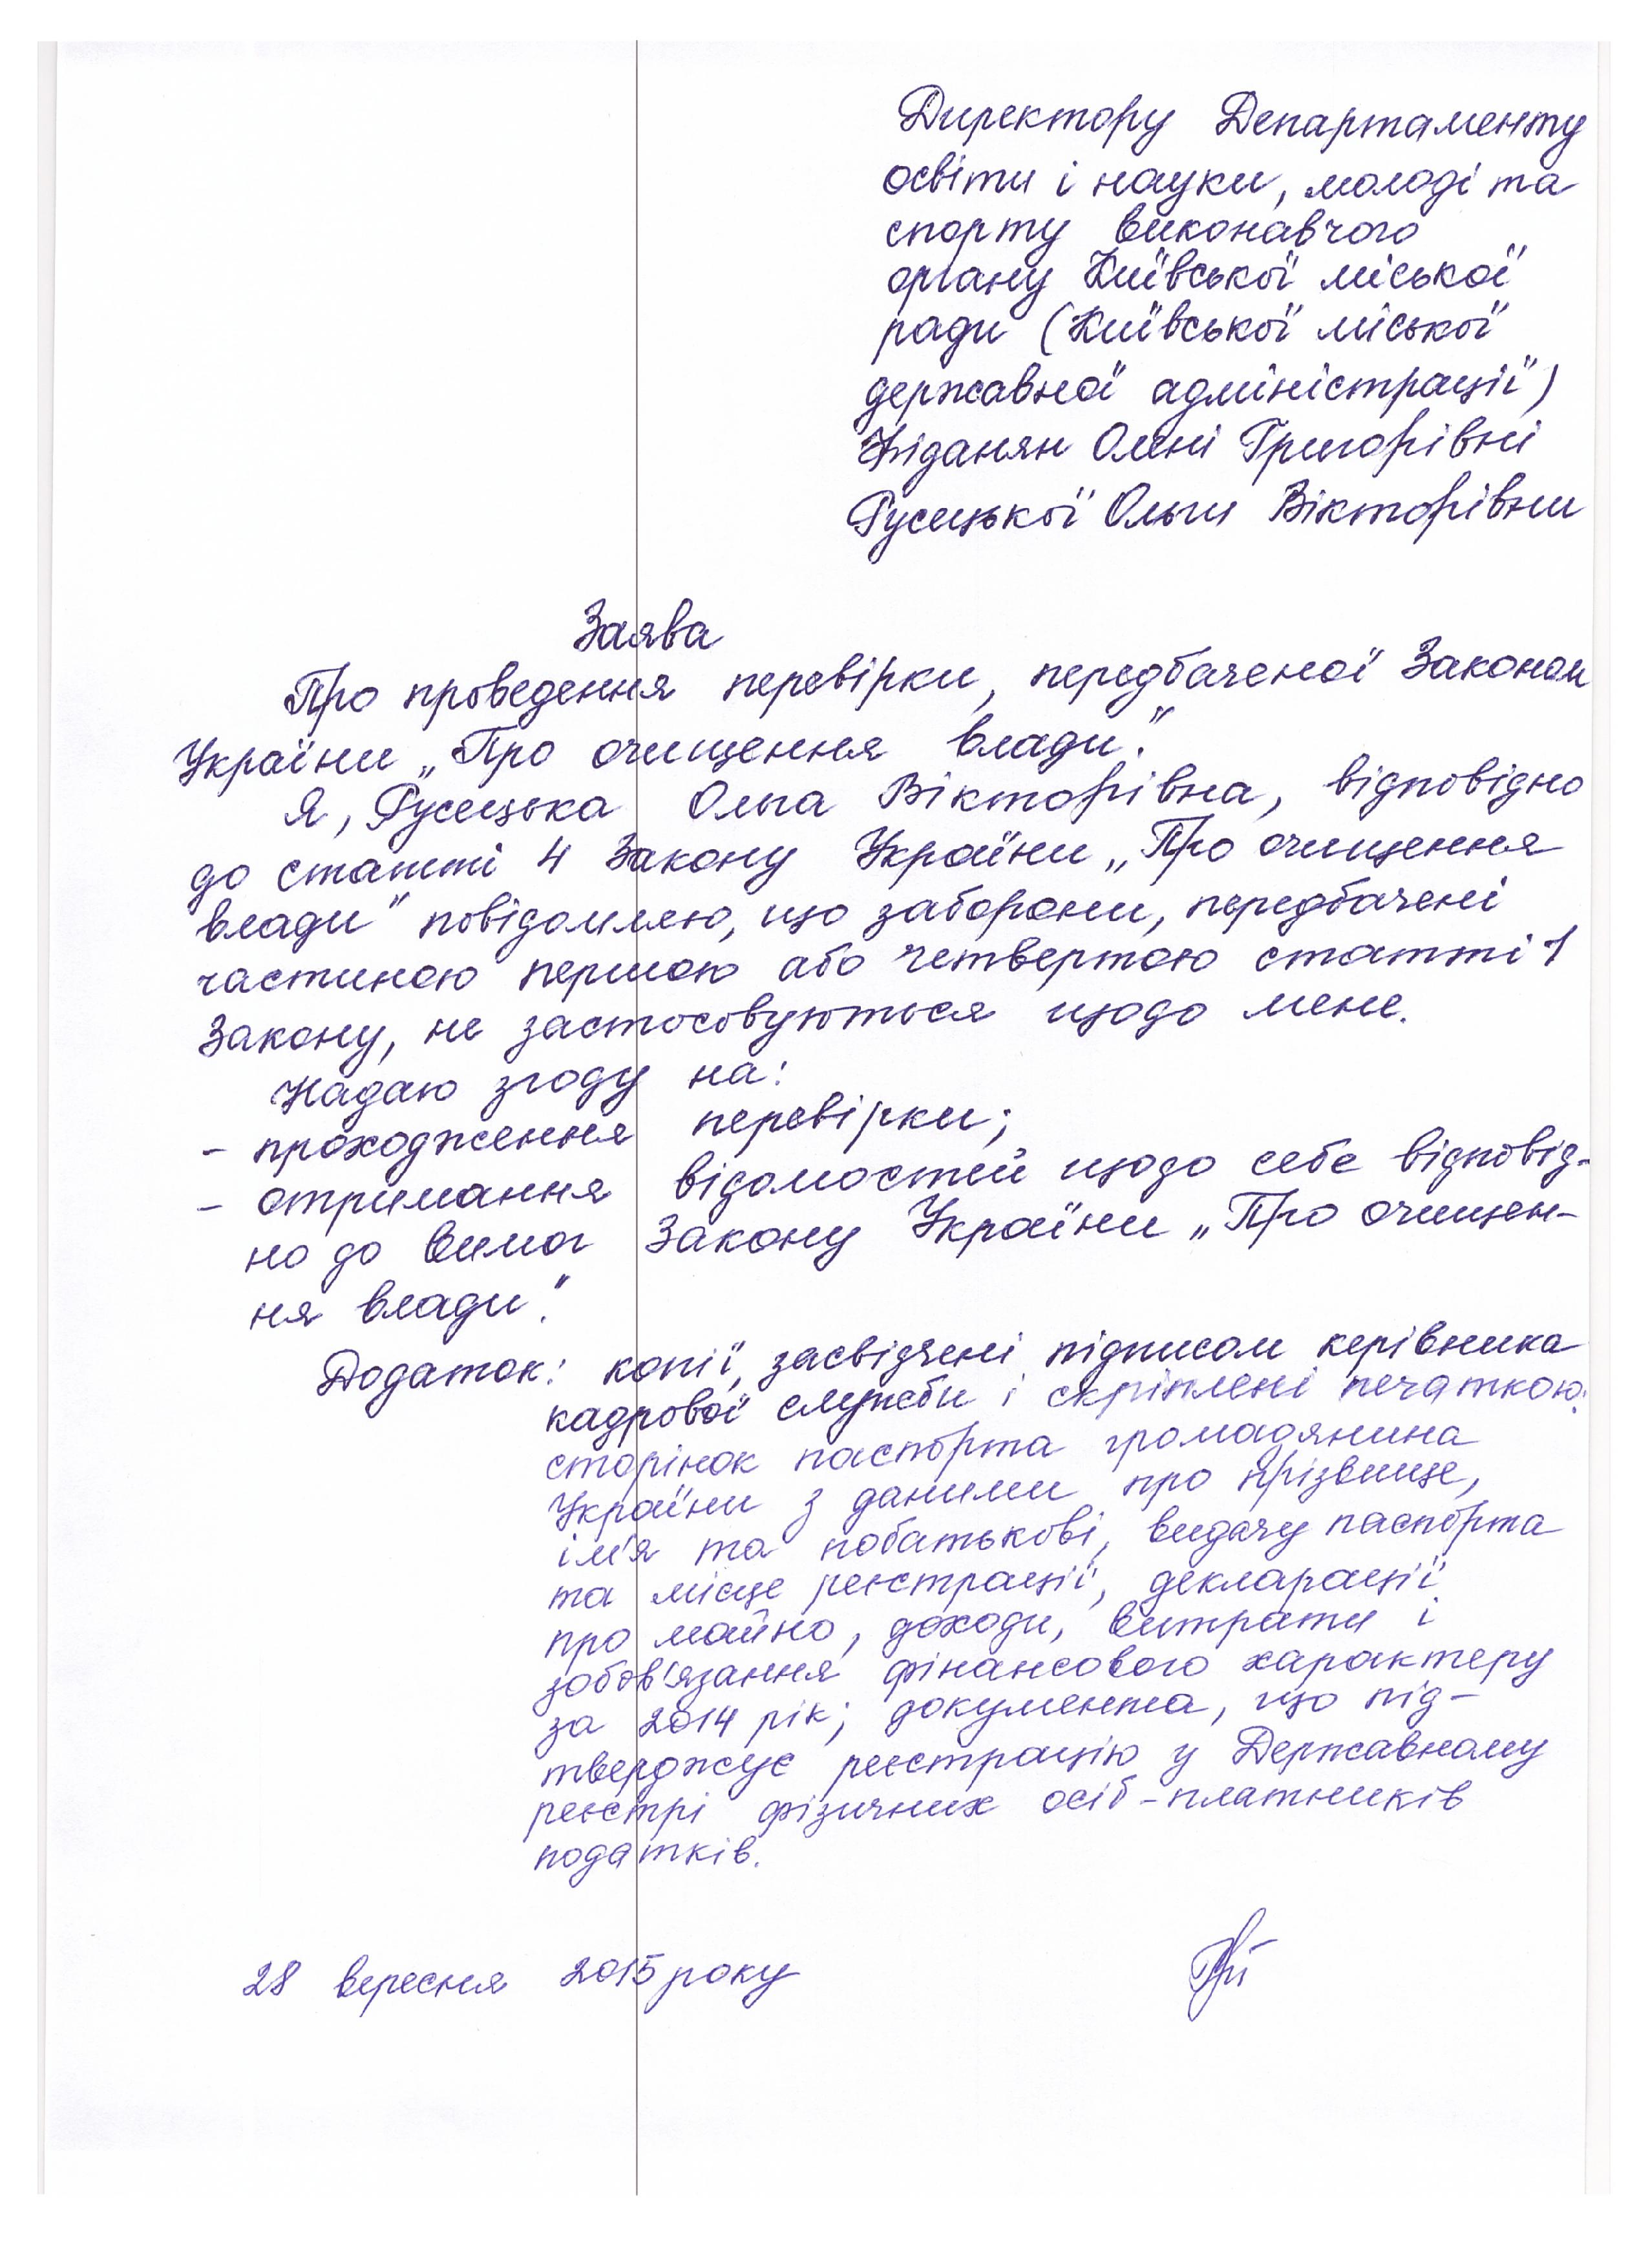 Директору Департаменту
освіти і науки, молоді та
спорту виконавчого
органу Київської міської
ради (Київської міської
державної адміністрації)
Фіданян Олені Григорівні
Русецької Ольги Вікторівни
Заява
Про проведення перевірки, передбаченої Законом
України „Про очищення влади".
Я, Русецька Ольга Вікторівна, відповідно
до статті 4 Закону України „Про очищення
влади" повідомляю, що заборони, передбачені
частиною першою або четвертою статті 1
Закону, не застосовуються щодо мене.
Надаю згоду на:
- проходження перевірки;
- отримання відомостей щодо себе відповід-
но до вимог Закону України „Про очищен-
ня влади".
Додаток: копії, засвідчені підписом керівника
кадрової служби і скріплені печаткою:
сторінок паспорта громадянина
України з даними про прізвище,
ім'я та побатькові, видачу паспорта
та місце реєстрації, декларації
про майно, доходи, витрати і
зобов'язання фінансового характеру
за 2014 рік; документа, що під-
тверджує реєстрацію у Державному
реєстрі фізичних осіб-платників
податків.
28 вересня 2015 року